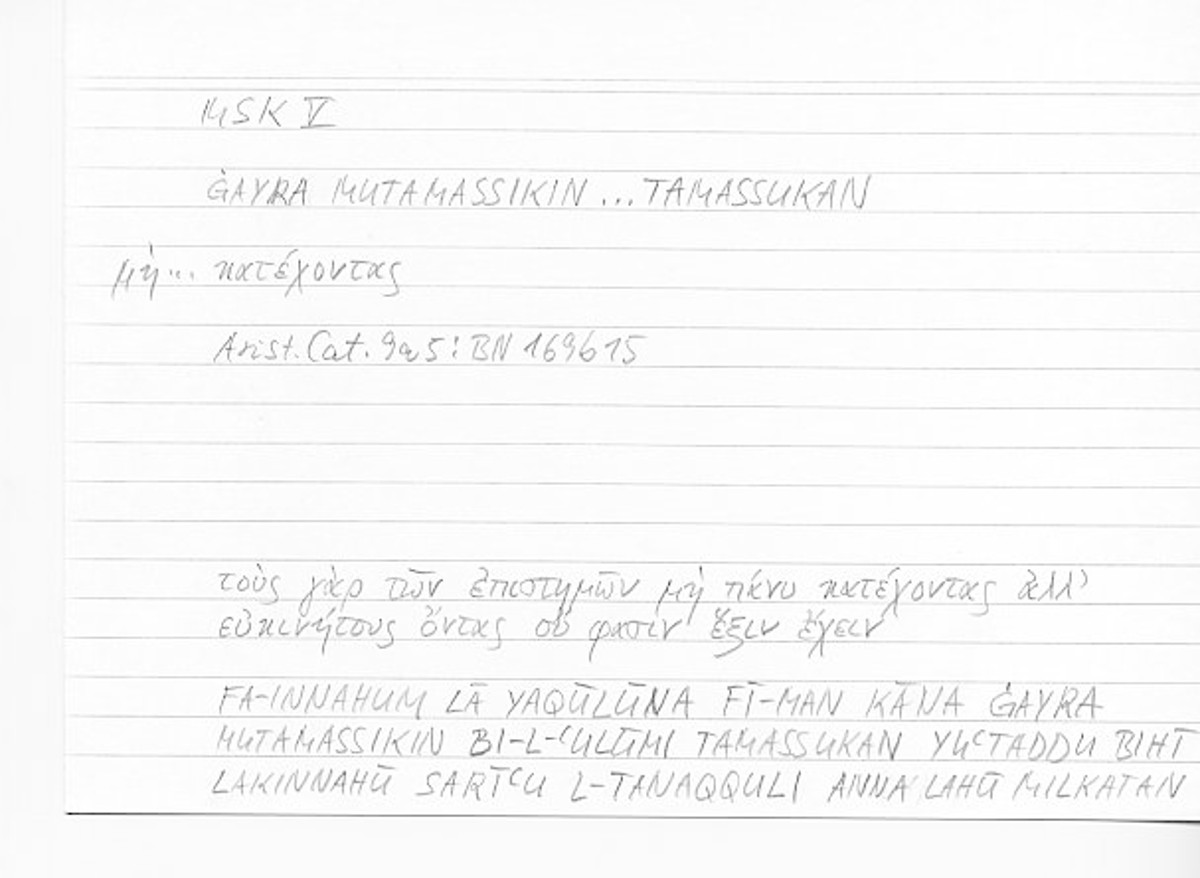 MSK V
ĠAYRA MUTAMASSIKIN ... TAMASSUKAN
μὴ... κατέχοντας
Arist. Cat. 9a5: BN 169b15
τοὺς γὰρ τῶν ἐπιστημῶν μὴ πάνυ κατέχοντας ἀλλ'
εὐκινήτους ὄντας οὔ φασιν ἕξιν ἔχειν
FA-INNAHUM LĀ YAQŪLŪNA FĪ-MAN KĀNA ĠAYRA
MUTAMASSIKIN BI-L-ʿULŪMI TAMASSUKAN YUʿTADDU BIHĪ
LAKINNAHŪ SARĪʿU L-TANAQQULI ANNA LAHŪ MILKATAN